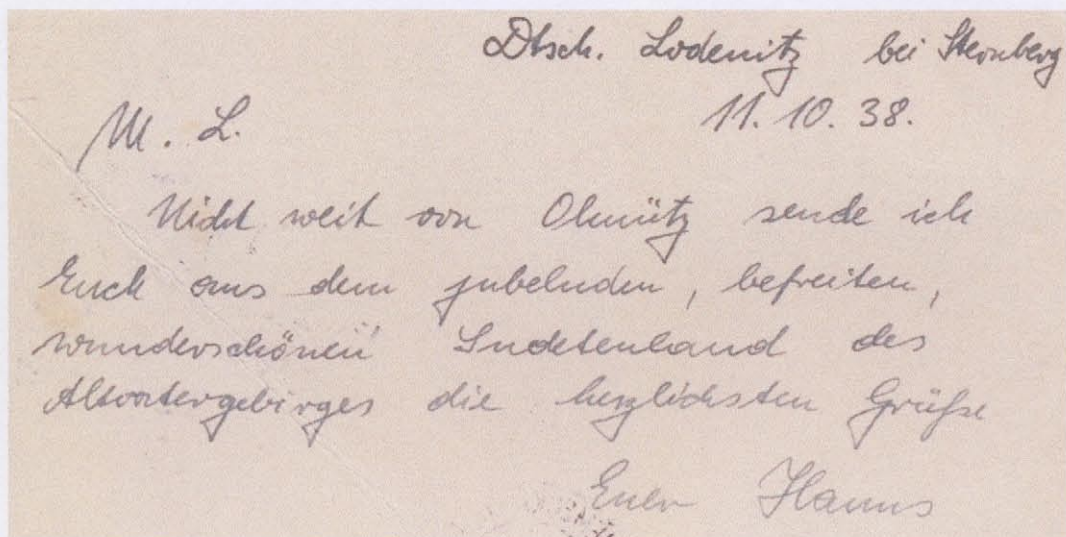 Dtsch. Lodenitz bei Sternberg
11. 10. 38.
M. L.
Nicht weit von Olmütz sende ich
Euch aus dem jubelnden, befreiten,
wunderschönen Sudetenland des
Altvatergebirges die herzlichsten Grüße
Euer Hanns